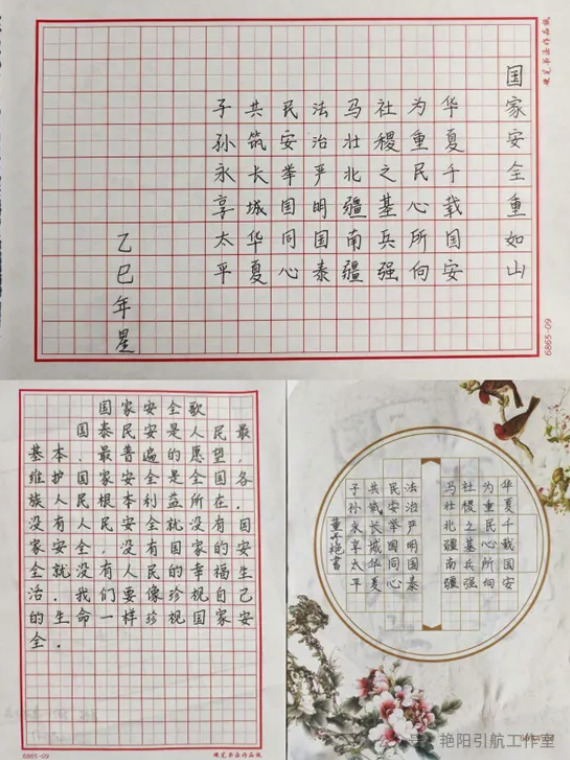 国家安全重如山
华夏千载国安
为重民心所向
社稷之基兵强
马壮北疆南疆
法治严明国泰
民安举国同心
共筑长城华夏
子孙永享太平
乙巳年星
6865-09
国家安全歌
国泰民安是人民最
基本、最普遍的愿望，
维护国家安全是全国各
族人民根本利益所在，
没有人民安全就没有国
家安全，没有国家的安
全就没有人民的幸福生
活，我们要像珍视自己
的生命一样珍视国家安
全。
6865-09
硬笔书法作品纸
华夏千载国安
为重民心所向
社稷之基兵强
马壮北疆南疆
法治严明国泰
民安举国同心
共筑长城华夏
子孙永享太平
公众号：艳阳引航工作室